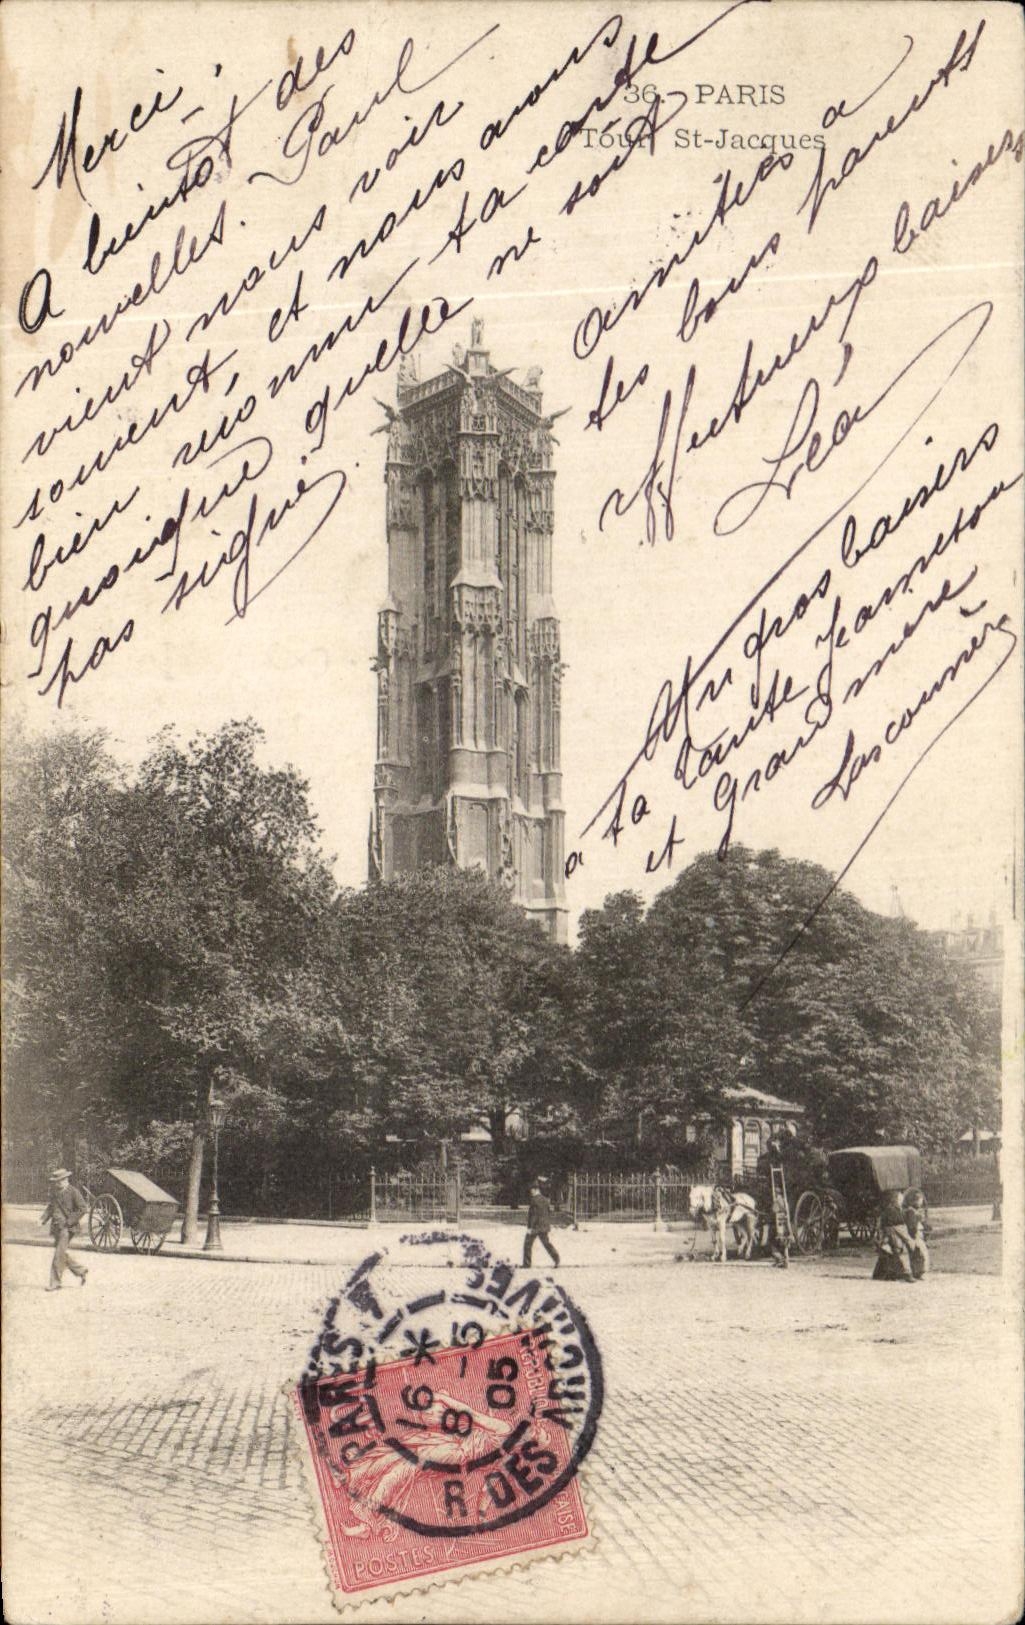 36. PARIS
Tour St-Jacques
Merci,
A bientôt des
nouvelles. Paul
vient nous voir
souvent, et nous avons
bien reconnu ta carte
quoique quelle ne soit
pas signé.
Amitiés a
tes bons parents
Affectueux baisers
Léa
Un gros baisers
a ta tante Jeanneton
et Grand mère
PARIS 4
R. DES ARCHIVES
16 *
8 - 5
05
REPUBLIQUE FRANÇAISE
POSTES